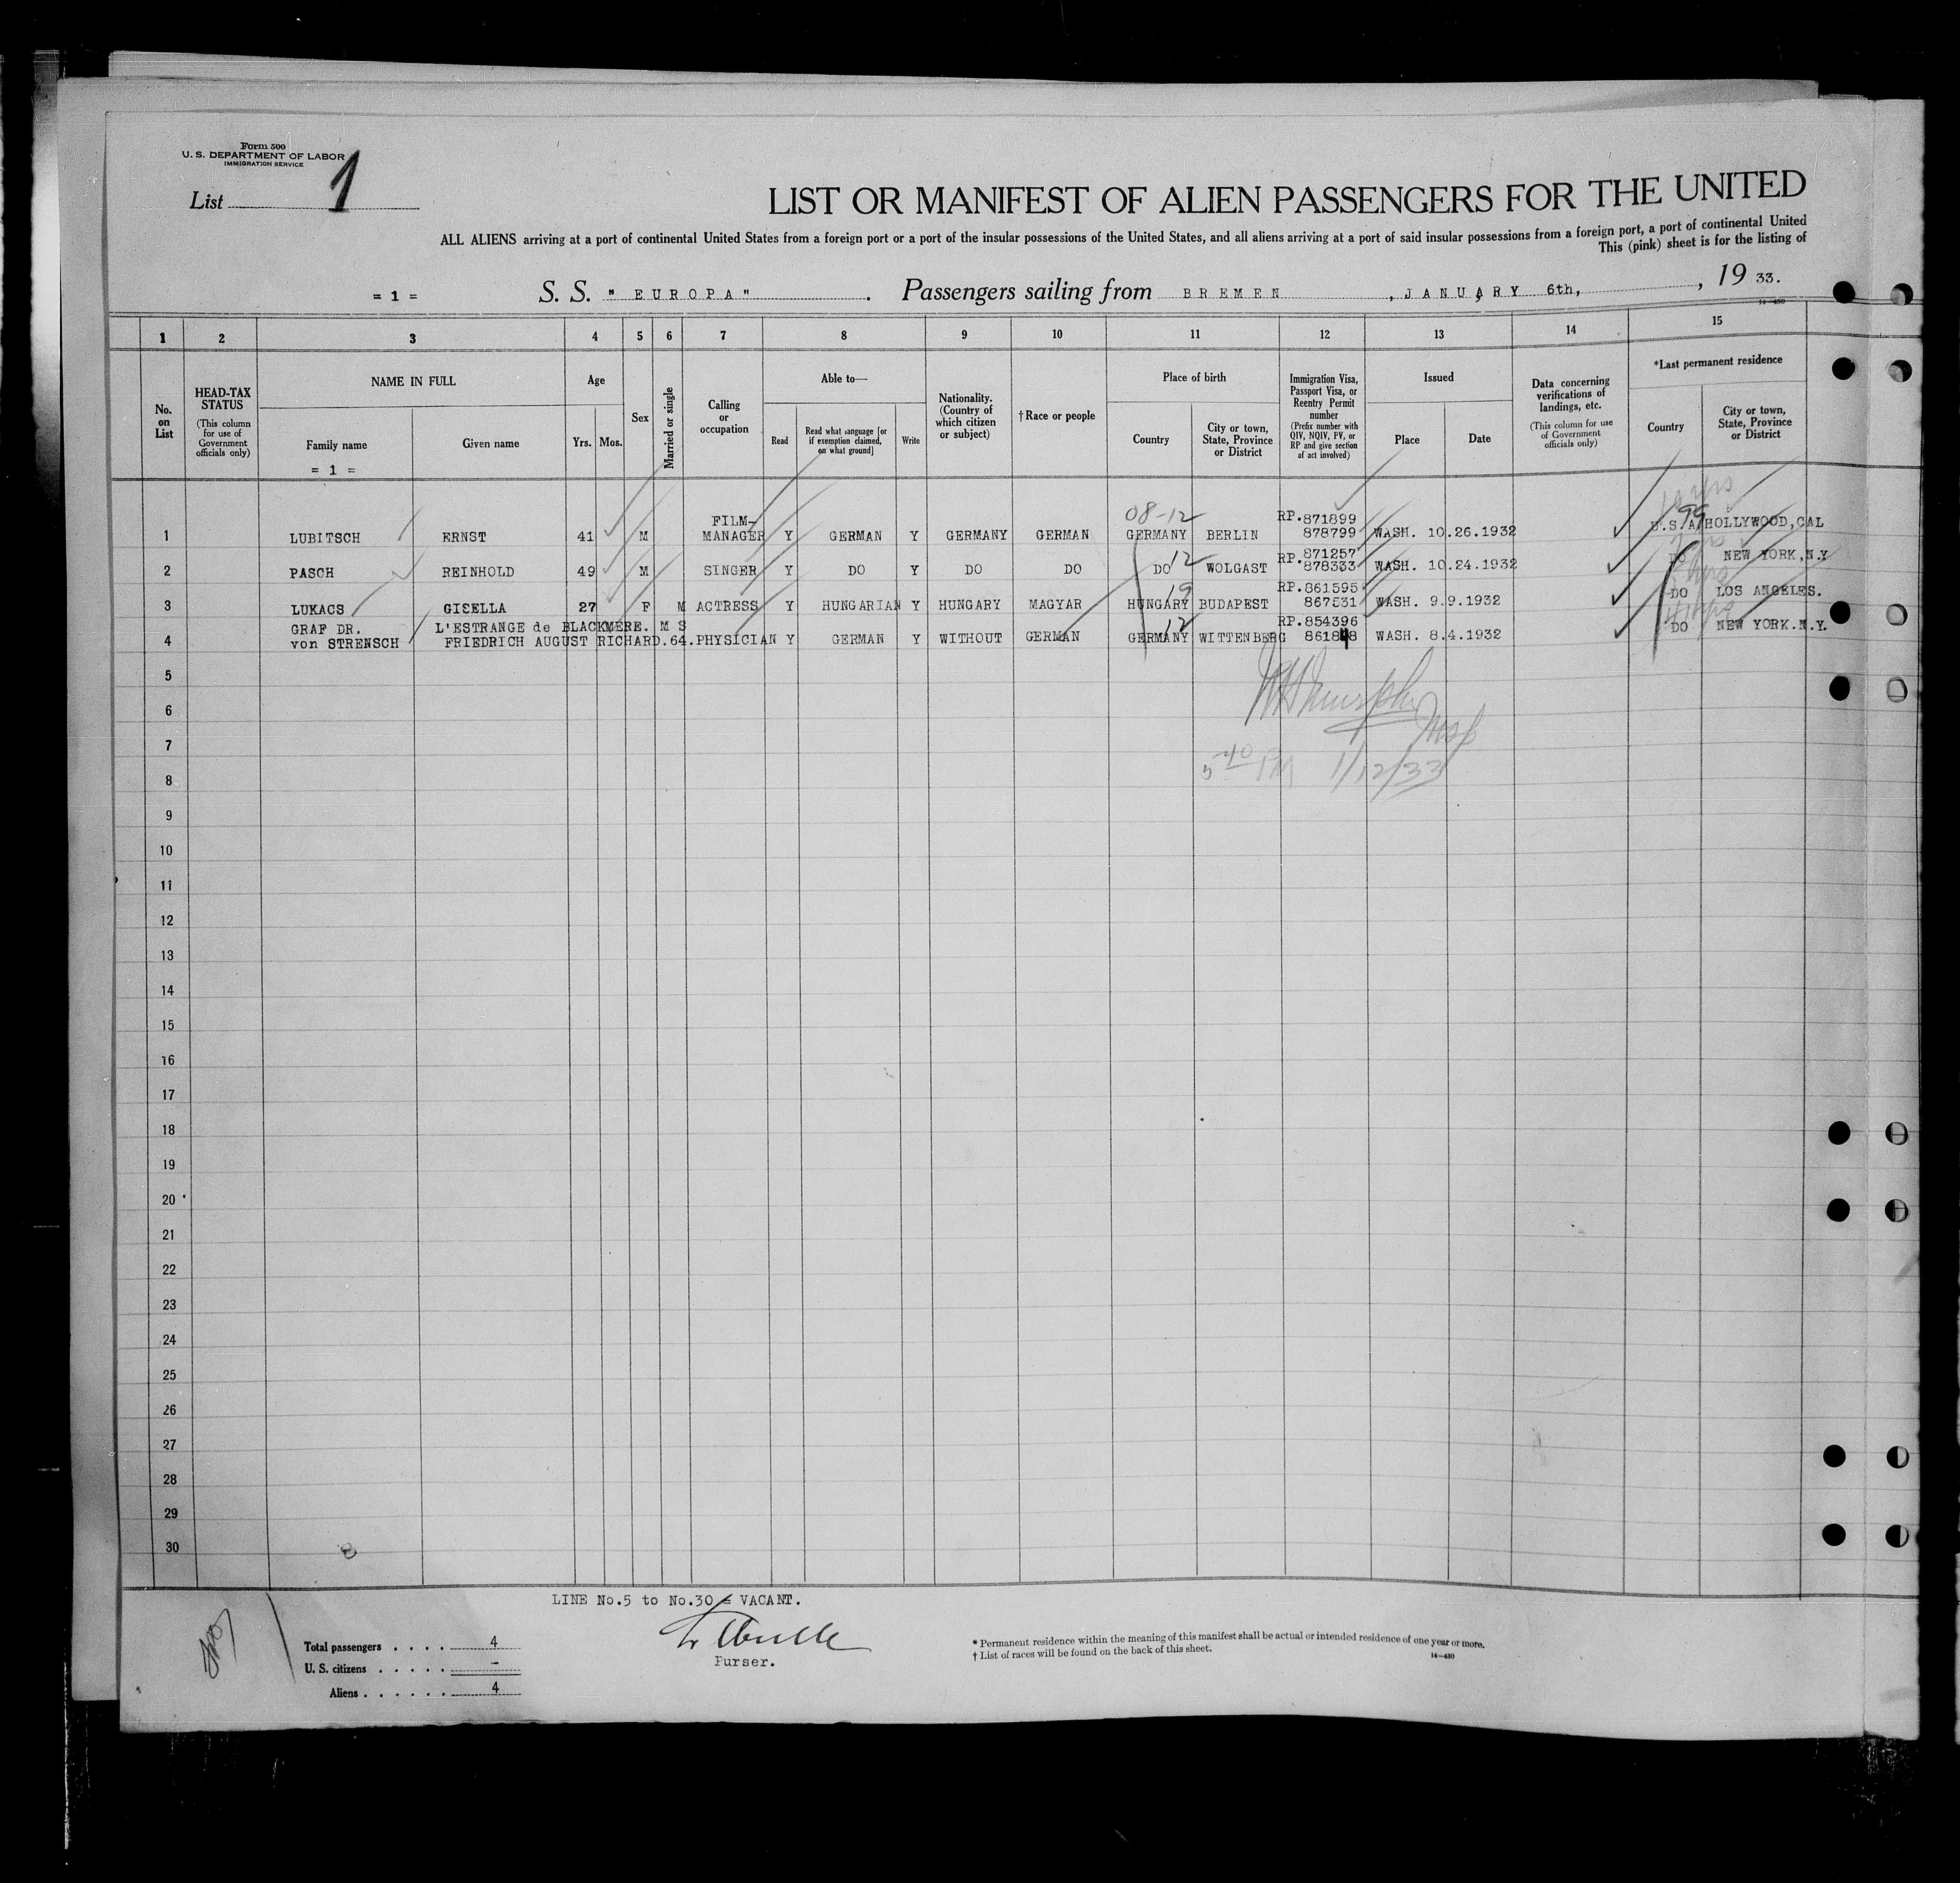 Form 500
U. S. DEPARTMENT OF LABOR
IMMIGRATION SERVICE
List 1
LIST OR MANIFEST OF ALIEN PASSENGERS FOR THE UNITED
ALL ALIENS arriving at a port of continental United States from a foreign port or a port of the insular possessions of the United States, and all aliens arriving at a port of said insular possessions from a foreign port, a port of continental United
This (pink) sheet is for the listing of
= 1 = S. S. " EUROPA" . Passengers sailing from BREMEN , JANUARY 6th, , 19 33.
14—430
1 2 3 4 5 6 7 8 9 10 11 12 13 14 15
No. on List
HEAD-TAX STATUS
(This column for use of Government officials only)
NAME IN FULL
Family name
= 1 =
Given name
Age
Yrs. Mos.
Sex
Married or single
Calling or occupation
Able to—
Read
Read what language [or if exemption claimed, on what ground]
Write
Nationality. (Country of which citizen or subject)
†Race or people
Place of birth
Country
City or town, State, Province or District
Immigration Visa, Passport Visa, or Reentry Permit number
(Prefix number with QIV, NQIV, PV, or RP and give section of act involved)
Issued
Place
Date
Data concerning verifications of landings, etc.
(This column for use of Government officials only)
*Last permanent residence
Country
City or town, State, Province or District
FILM- 08-12 RP.871899 99
1 LUBITSCH ERNST 41 M MANAGER Y GERMAN Y GERMANY GERMAN GERMANY BERLIN 878799 WASH. 10.26.1932 U.S.A HOLLYWOOD,CAL
12 RP.871257
2 PASCH REINHOLD 49 M SINGER Y DO Y DO DO DO WOLGAST 878333 WASH. 10.24.1932 DO NEW YORK,N.Y
19 RP.861595
3 LUKACS GISELLA 27 F M ACTRESS Y HUNGARIAN Y HUNGARY MAGYAR HUNGARY BUDAPEST 867531 WASH. 9.9.1932 DO LOS ANGELES.
GRAF DR. L'ESTRANGE de BLACKMERE. M S 12 RP.854396
4 von STRENSCH FRIEDRICH AUGUST RICHARD.64.PHYSICIAN Y GERMAN Y WITHOUT GERMAN GERMANY WITTENBERG WASH. 8.4.1932 DO NEW YORK.N.Y.
5
6
7
5 40 PM 1/12/33
8
9
10
11
12
13
14
15
16
17
18
19
20
21
22
23
24
25
26
27
28
29
30
LINE No.5 to No.30 = VACANT.
Purser.
Total passengers . . . . 4
U. S. citizens . . . . . -
Aliens . . . . . . 4
* Permanent residence within the meaning of this manifest shall be actual or intended residence of one year or more.
† List of races will be found on the back of this sheet.
14—430